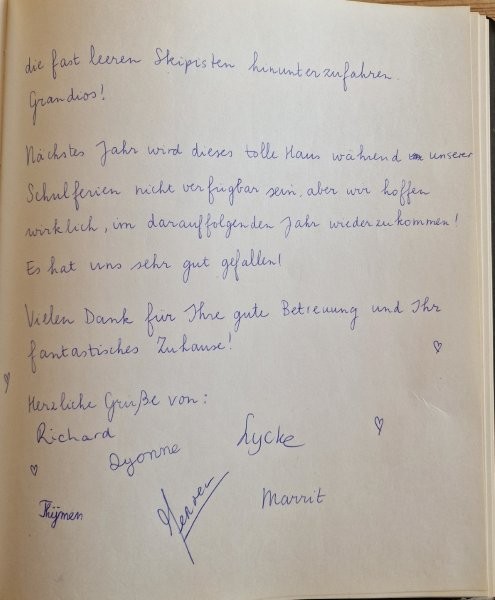 die fast leeren Skipisten hinunterzufahren.
Grandios!
Nächstes Jahr wird dieses tolle Haus während unserer
Schulferien nicht verfügbar sein, aber wir hoffen
wirklich, im darauffolgenden Jahr wiederzukommen!
Es hat uns sehr gut gefallen!
Vielen Dank für Ihre gute Betreuung und Ihr
fantastisches Zuhause!
Herzliche Gruße von:
Richard
Yvonne
Lycke
Thijmen
Marrit